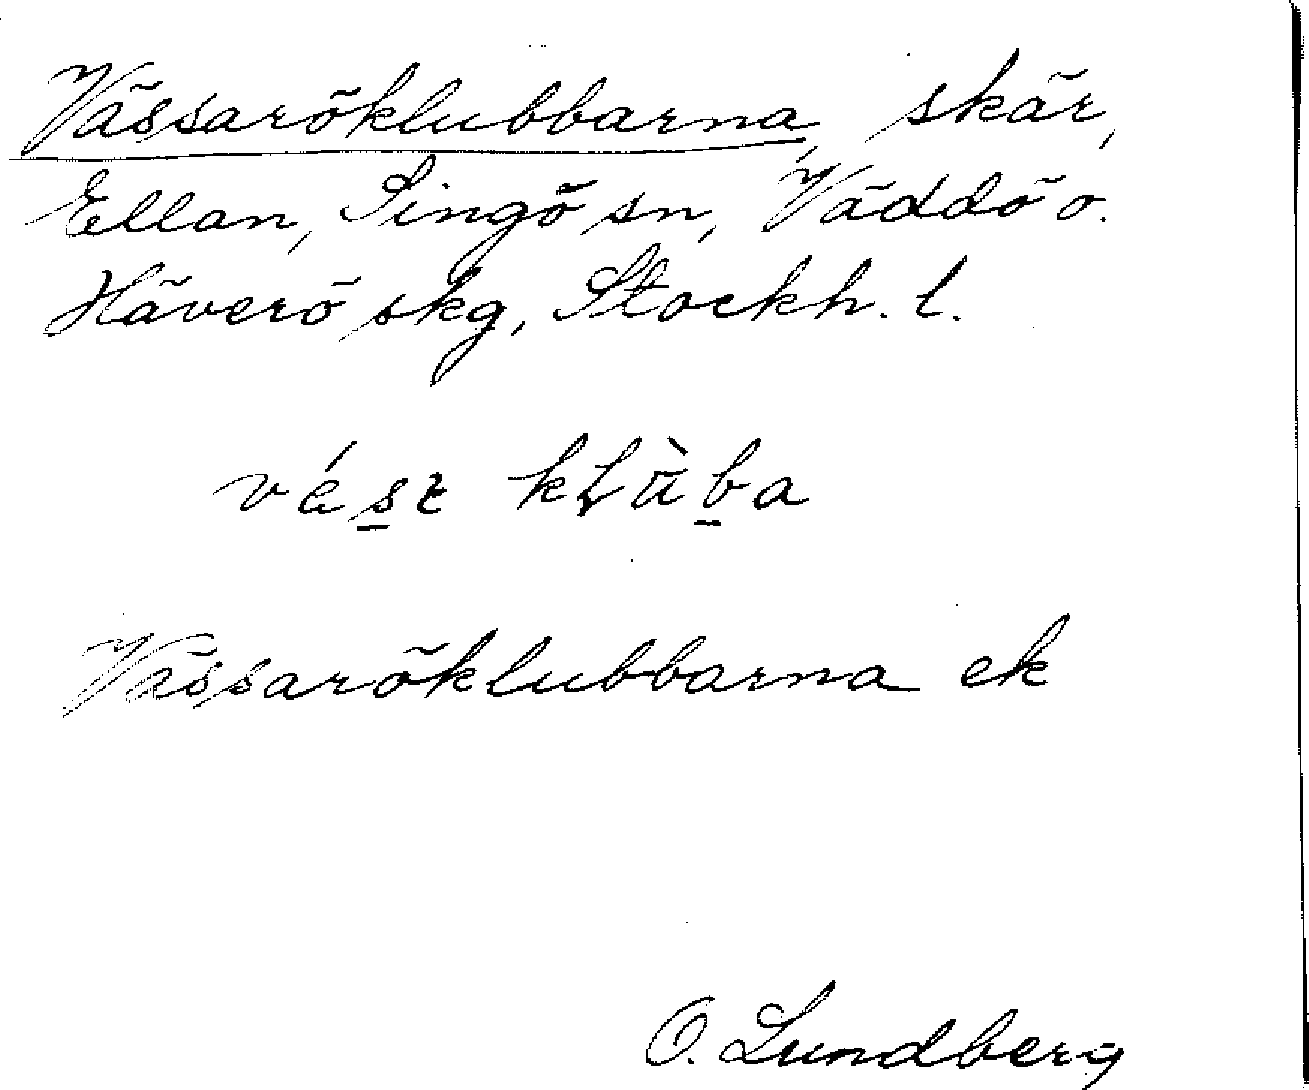 Vässaröklubbarna, skär,
Ellan, Singö sn, Väddö o.
Häverö skg, Stockh. l.
Vässaröklubbarna ek
O. Lundberg